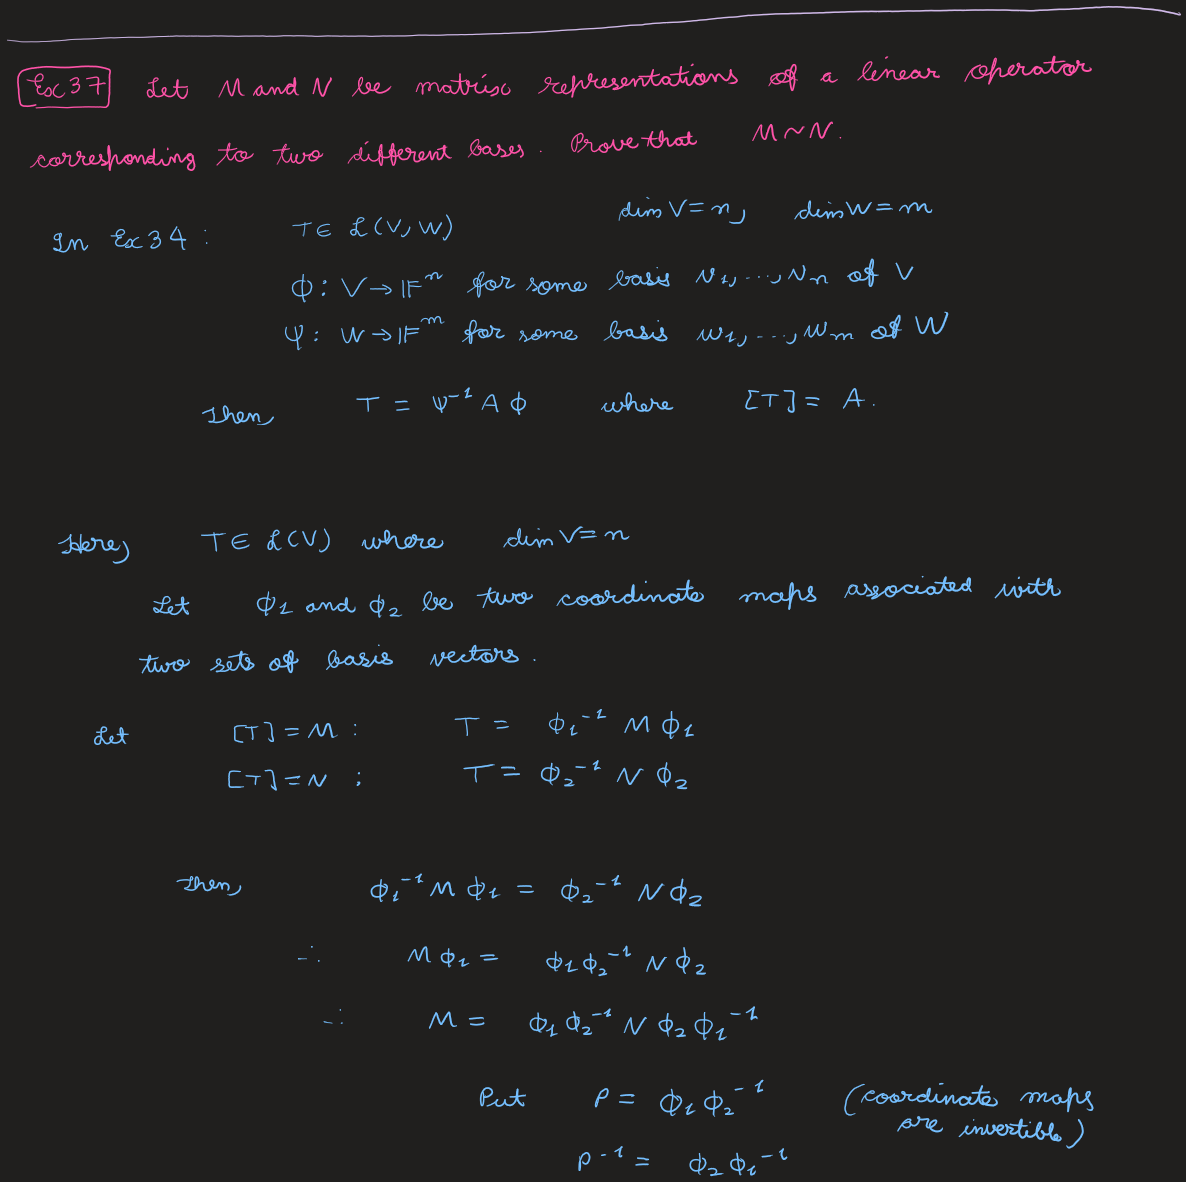 Ex 37 Let M and N be matrix representations of a linear operator
corresponding to two different bases. Prove that M ~ N.
In Ex 34 : T ∈ L(V, W) dim V = n, dim W = m
Φ : V → 𝔽ⁿ for some basis v₁, ..., vₙ of V
Ψ : W → 𝔽ᵐ for some basis w₁, ..., wₘ of W
Then T = Ψ⁻¹ A Φ where [T] = A.
Here, T ∈ L(V) where dim V = n
Let Φ₁ and Φ₂ be two coordinate maps associated with
two sets of basis vectors.
Let [T] = M : T = Φ₁⁻¹ M Φ₁
[T] = N ; T = Φ₂⁻¹ N Φ₂
Then Φ₁⁻¹ M Φ₁ = Φ₂⁻¹ N Φ₂
∴ M Φ₁ = Φ₁ Φ₂⁻¹ N Φ₂
∴ M = Φ₁ Φ₂⁻¹ N Φ₂ Φ₁⁻¹
Put P = Φ₁ Φ₂⁻¹ (coordinate maps
are invertible)
P⁻¹ = Φ₂ Φ₁⁻¹